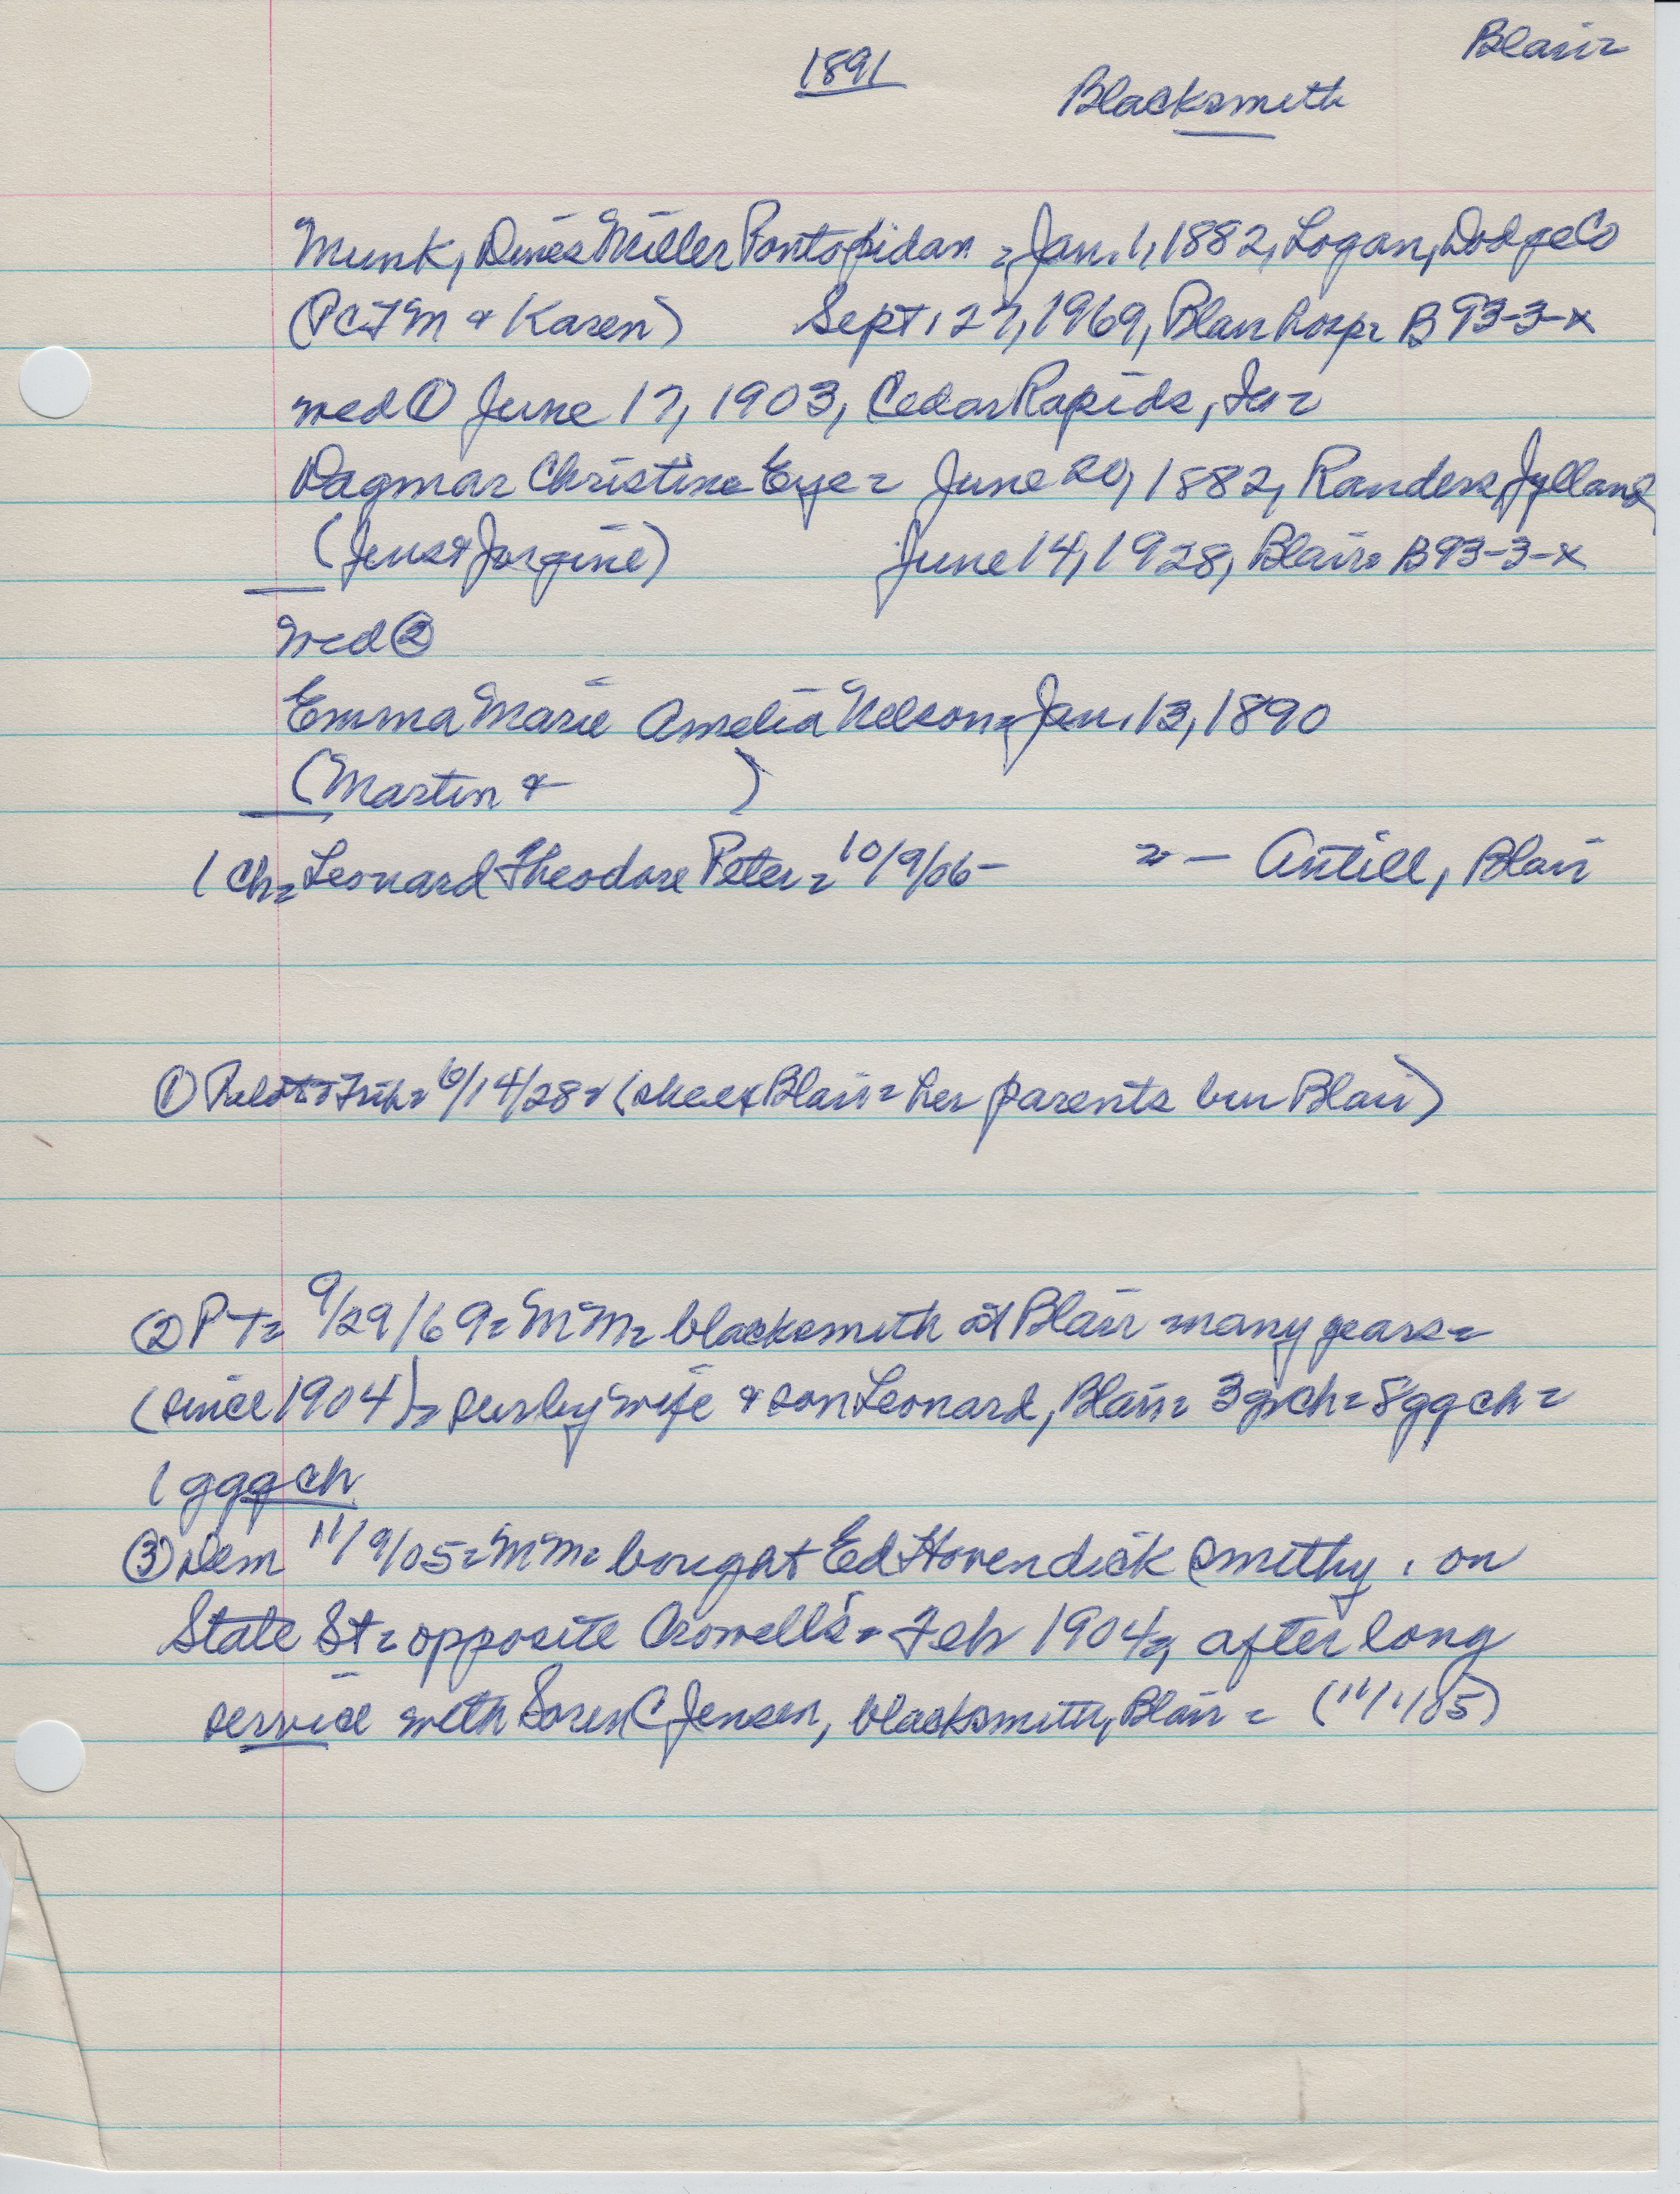 Blair=
1891
Blacksmith
Munk, Dines Miller Pontopidan = Jan. 1, 1882, Logan, Dodge Co
(PCTM & Karen) Sept. 27, 1969, Blair hosp= B93-3-x
wed ① June 17, 1903, Cedar Rapids, Ia=
Dagmar Christine Eye= June 20, 1882, Randers, Jylland
(Jens & Jorgine) June 14, 1928, Blair= B93-3-x
wed ②
Emma Marie Amelia Nelson= Jan. 13, 1890
(Martin & )
1 ch= Leonard Theodore Peter= 10/9/06- = - Antill, Blair
① = 6/14/28= Blair= her parents bur Blair)
② PT= 9/29/69= MM= blacksmith at Blair many years=
(since 1904)= surby wife & son Leonard, Blair= 3 grch= 8 ggch=
1 gggch
③ Dem 11/9/05= MM= bought Ed Hovendick smithy, on
State St= opposite Crowell's= Feb 1904, after long
service with Soren C Jensen, blacksmith, Blair= (11/1/05)